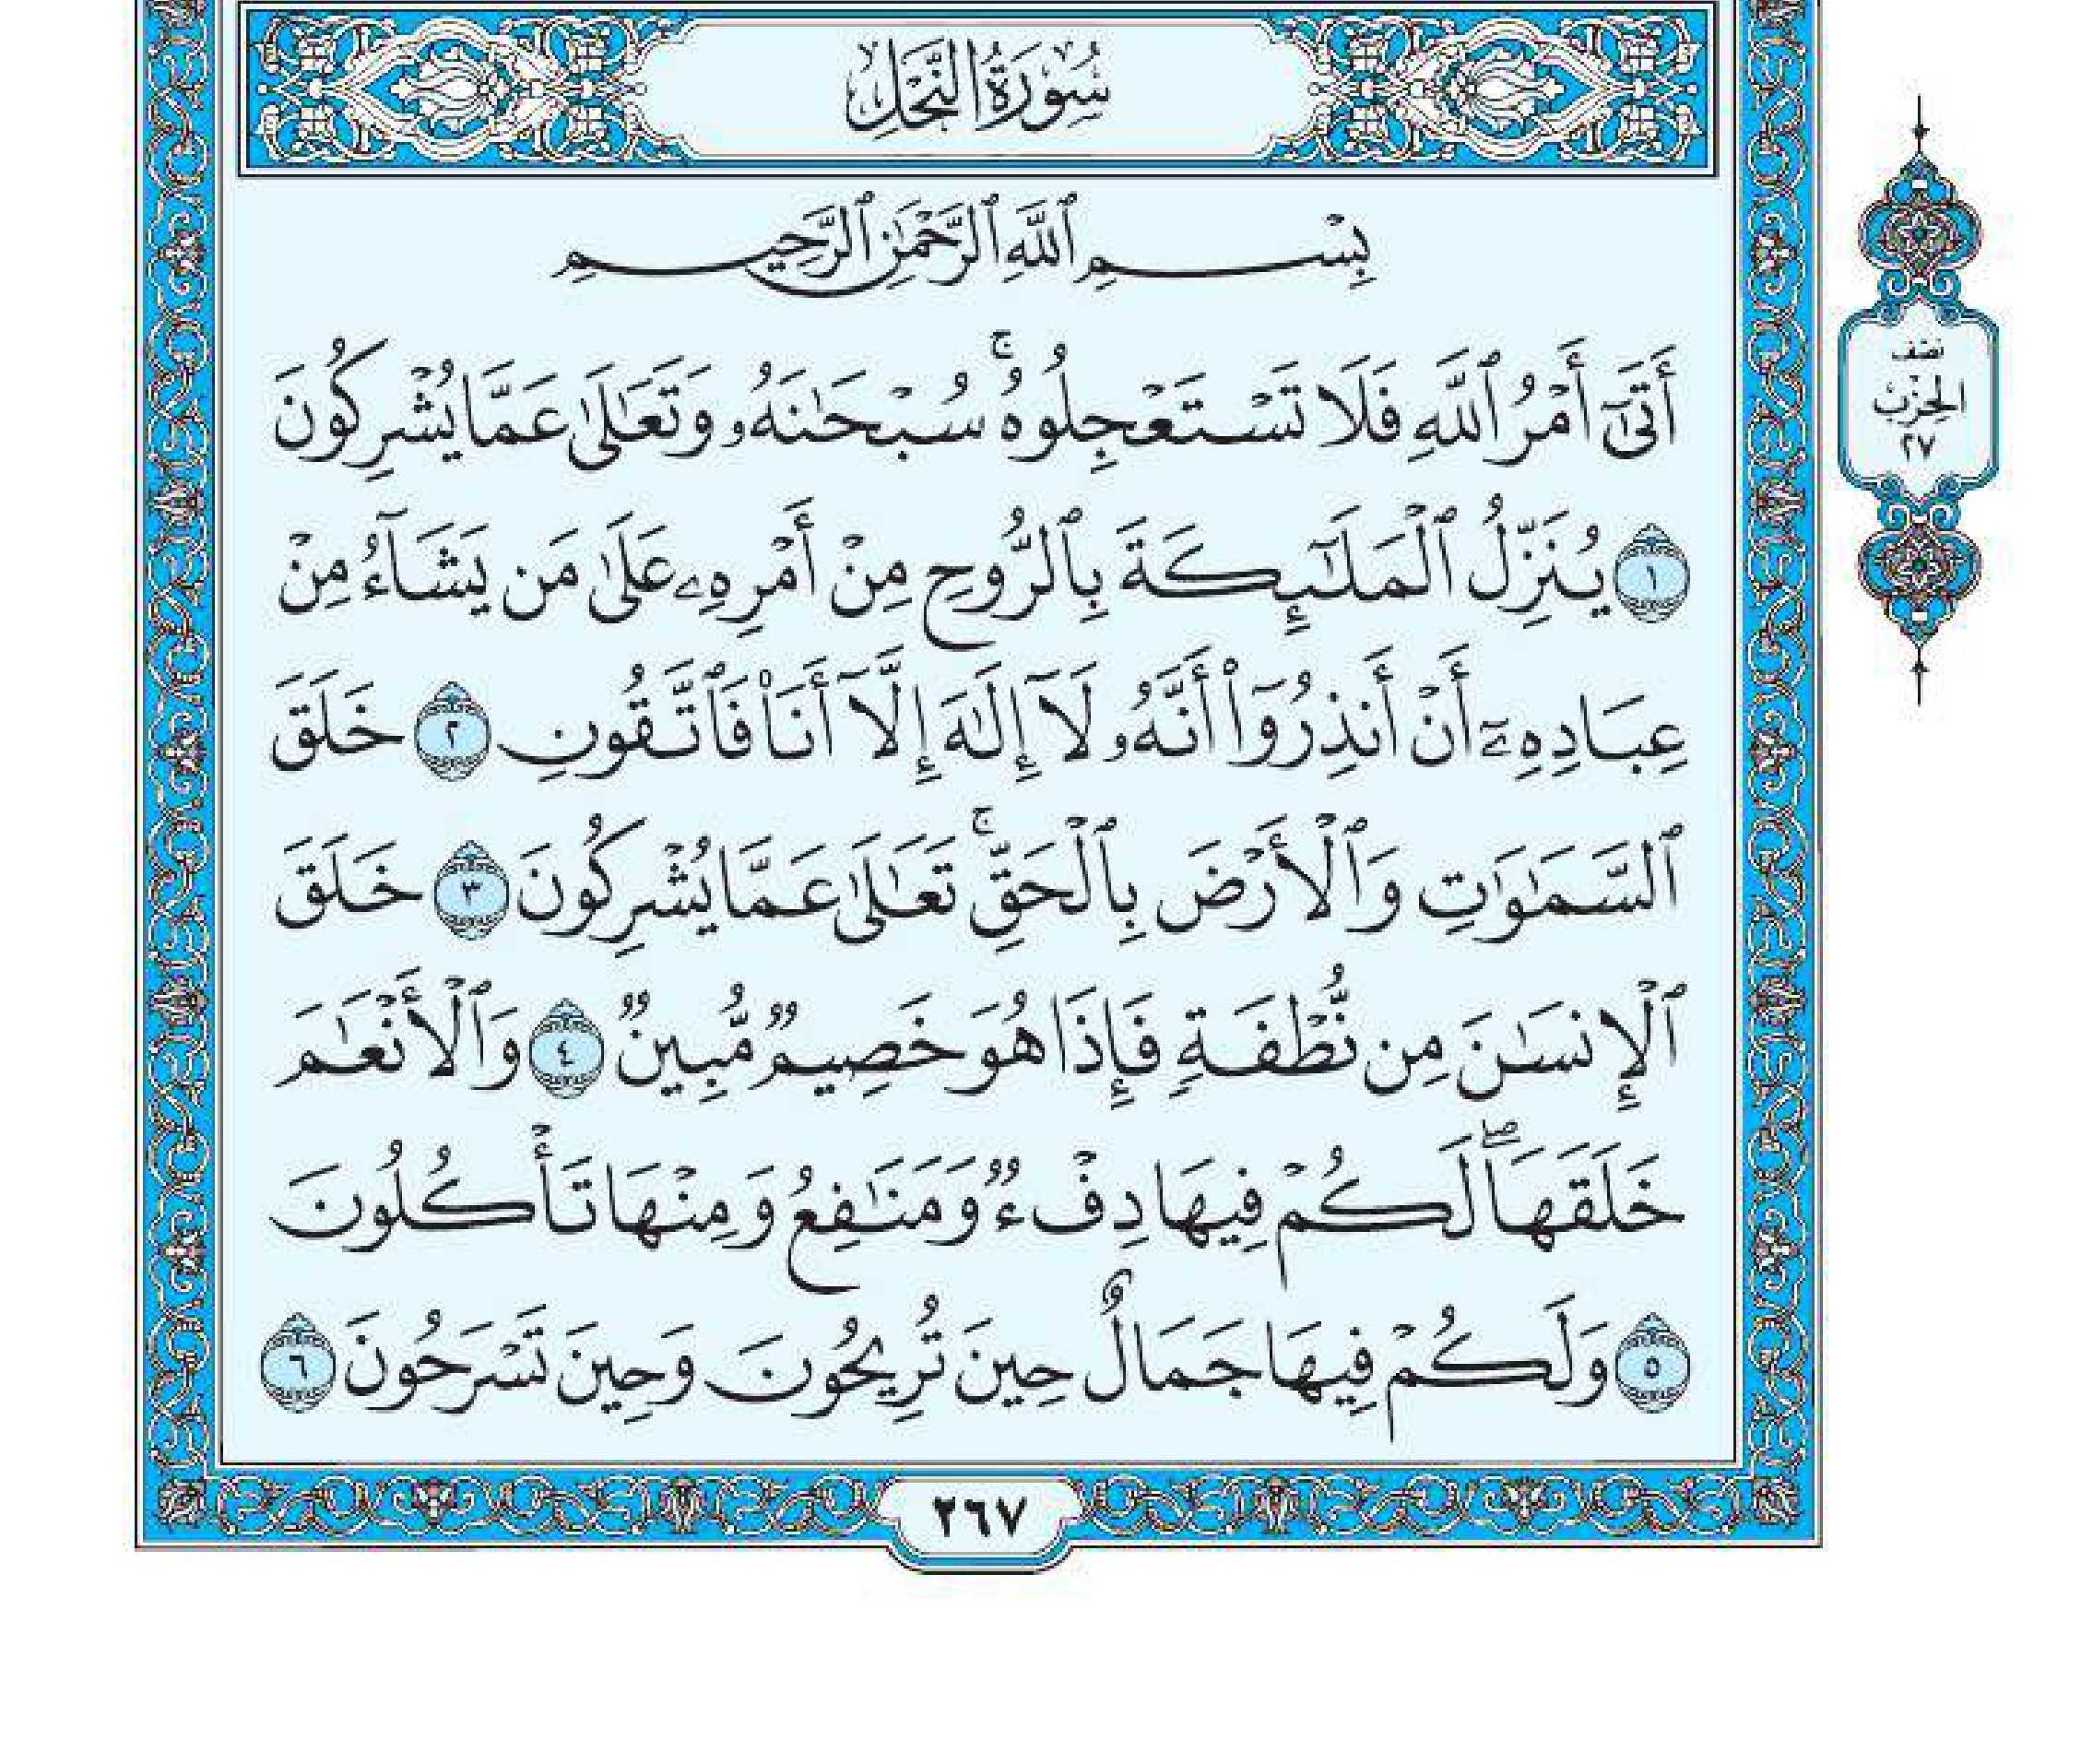 سُورَةُ النَّحۡلِ
بِسۡمِ ٱللَّهِ ٱلرَّحۡمَٰنِ ٱلرَّحِيمِ
أَتَىٰٓ أَمۡرُ ٱللَّهِ فَلَا تَسۡتَعۡجِلُوهُۚ سُبۡحَٰنَهُۥ وَتَعَٰلَىٰ عَمَّا يُشۡرِكُونَ
١ يُنَزِّلُ ٱلۡمَلَٰٓئِكَةَ بِٱلرُّوحِ مِنۡ أَمۡرِهِۦ عَلَىٰ مَن يَشَآءُ مِنۡ
عِبَادِهِۦٓ أَنۡ أَنذِرُوٓاْ أَنَّهُۥ لَآ إِلَٰهَ إِلَّآ أَنَا۠ فَٱتَّقُونِ ٢ خَلَقَ
ٱلسَّمَٰوَٰتِ وَٱلۡأَرۡضَ بِٱلۡحَقِّۚ تَعَٰلَىٰ عَمَّا يُشۡرِكُونَ ٣ خَلَقَ
ٱلۡإِنسَٰنَ مِن نُّطۡفَةٖ فَإِذَا هُوَ خَصِيمٞ مُّبِينٞ ٤ وَٱلۡأَنۡعَٰمَ
خَلَقَهَاۖ لَكُمۡ فِيهَا دِفۡءٞ وَمَنَٰفِعُ وَمِنۡهَا تَأۡكُلُونَ
٥ وَلَكُمۡ فِيهَا جَمَالٌ حِينَ تُرِيحُونَ وَحِينَ تَسۡرَحُونَ ٦
نصف
الحِزۡب
٢٧
٢٦٧